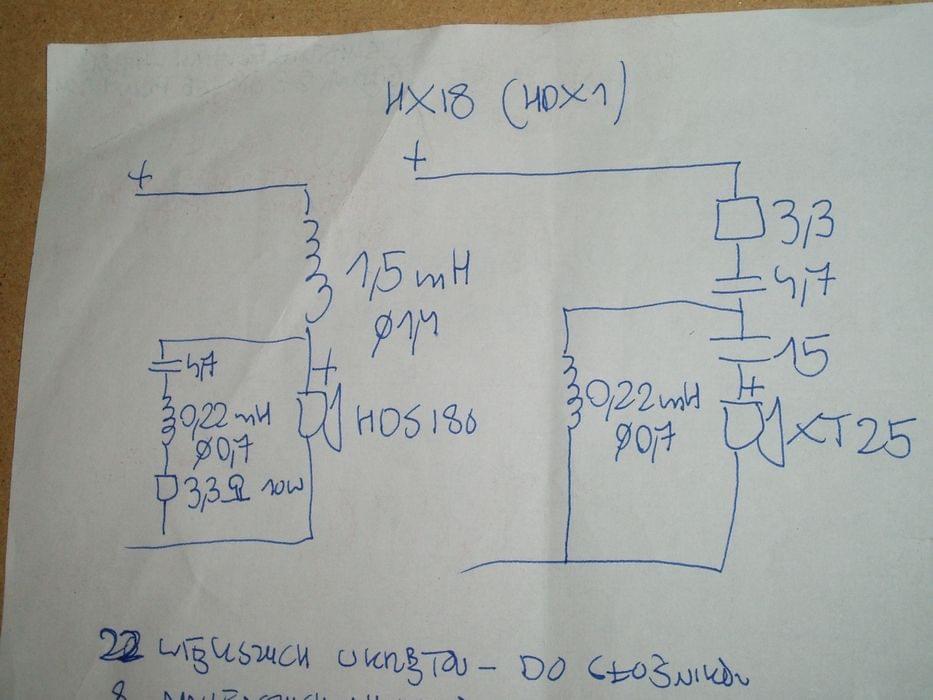 HX18 (HDX1)
+
+
3,3
1,5 mH
4,7
Ø1,4
4,7
15
+
+
0,22 mH
0,22 mH
HDS180
Ø0,7
Ø0,7
XT25
3,3 Ω 10W
22 WIĘKSZYCH WKRĘTÓW - DO GŁOŚNIKÓW
8